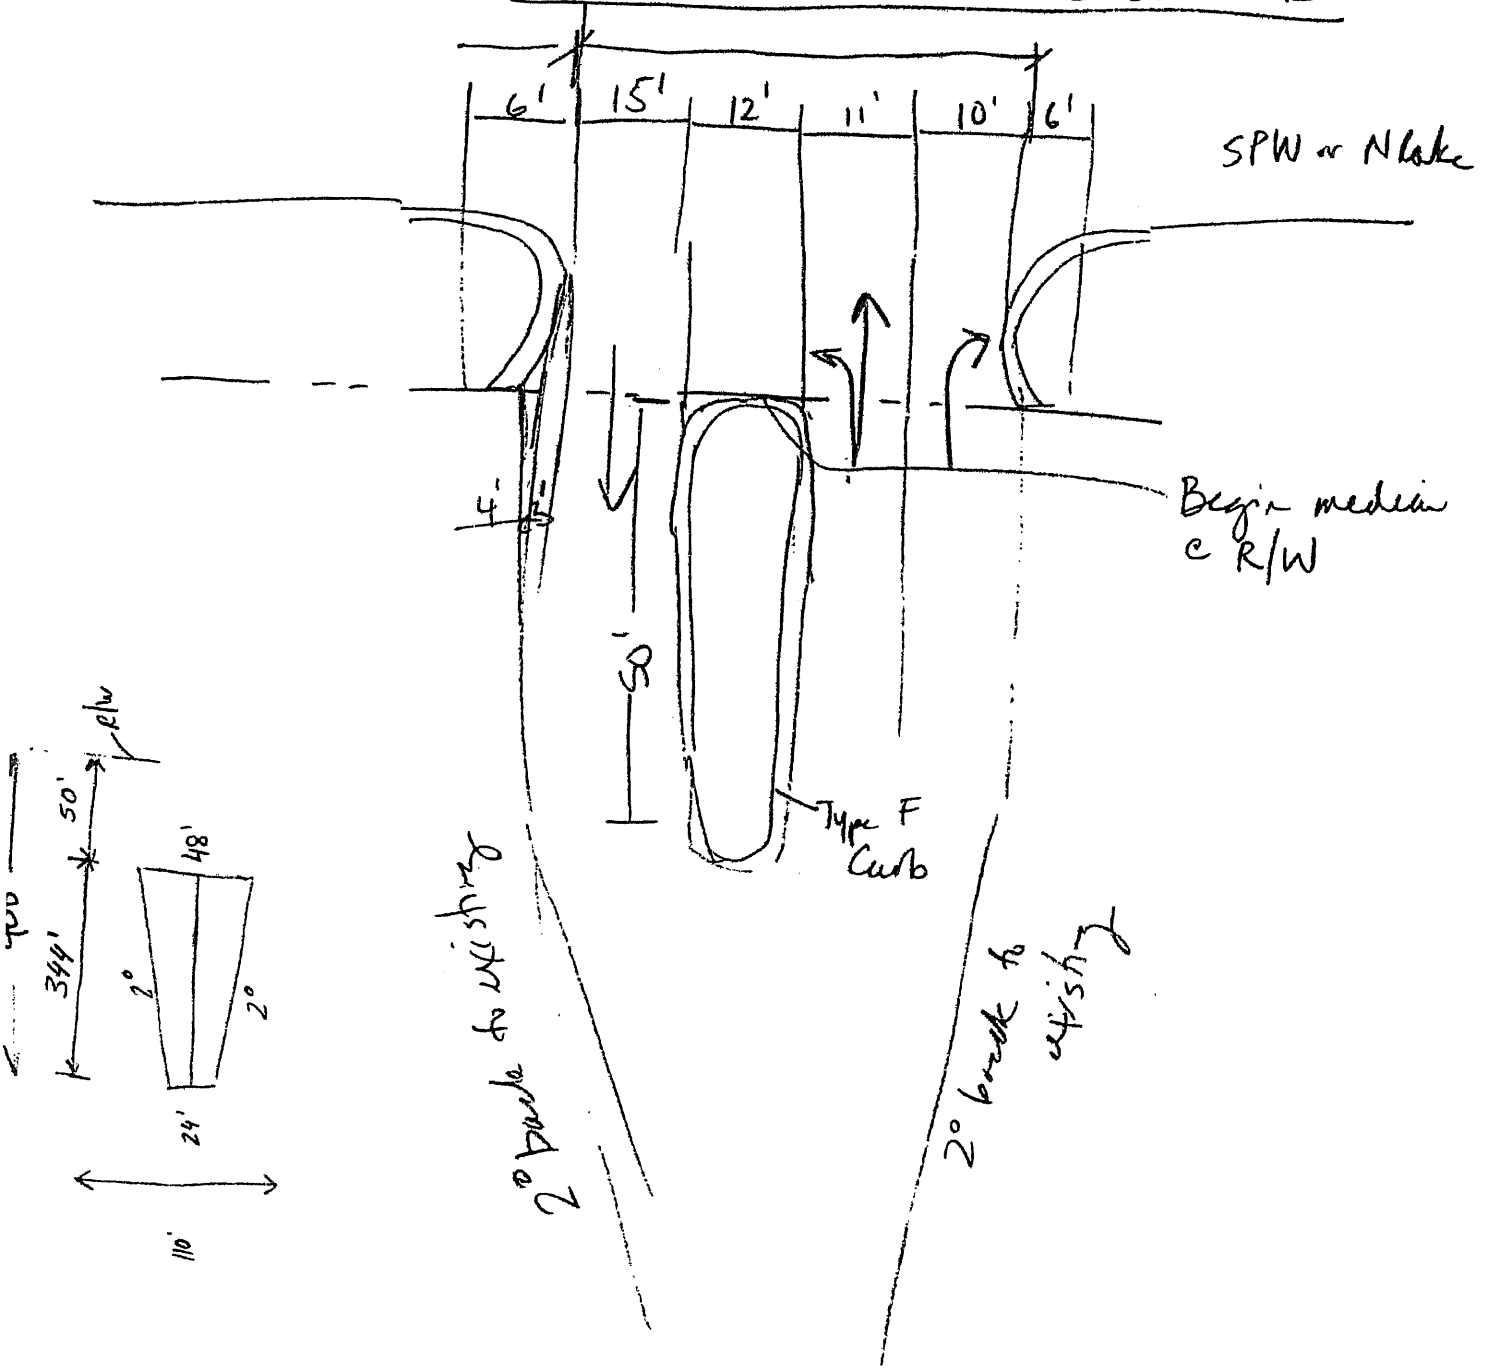 6' 15' 12' 11' 10' 6'
SPW or NLake
4' 2'
Begin median
@ R/W
50'
Type F
Curb
2° back to existing
2° back to
existing
R/W
50'
48'
400
344'
2° 2°
24'
110'